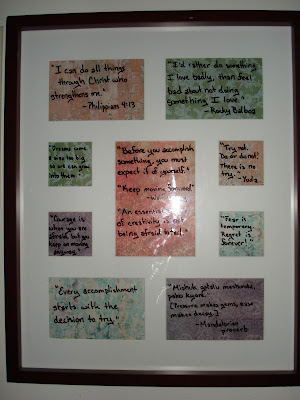 "I can do all things
through Christ who
strengthens me."
-Philippians 4:13
"I'd rather do something
I love badly, than feel
bad about not doing
something I love."
- Rocky Balboa
"Dreams come
a size too big
so we can grow
into them."
"Before you accomplish
something, you must
expect it of yourself."
"Keep moving forward."
"An essential
of creativity is not
being afraid to fail."
"Try not.
Do or do not!
There is
no try."
- Yoda
"Courage is
when you are
afraid, but you
keep on moving
anyway."
"Fear is
temporary.
Regret is
forever!"
"Every accomplishment
starts with the
decision to try."
[Pressure makes gems, ease
makes decay.]
- Mandalorian
proverb